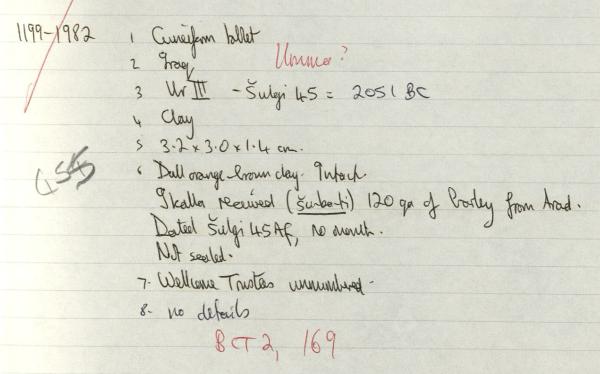 1199-1982 1 Cuneiform tablet
2 Iraq Umma?
3 Ur III - Šulgi 45 = 2051 BC
4 Clay
5 3.2 x 3.0 x 1.4 cm.
6 Dull orange-brown clay. Intact.
Ikalla received (šuba-ti) 120 qa of barley from Arad.
Dated Šulgi 45Af, no month.
Not sealed.
7. Wellcome Trustees unnumbered.
8. no details
BCT 2, 169